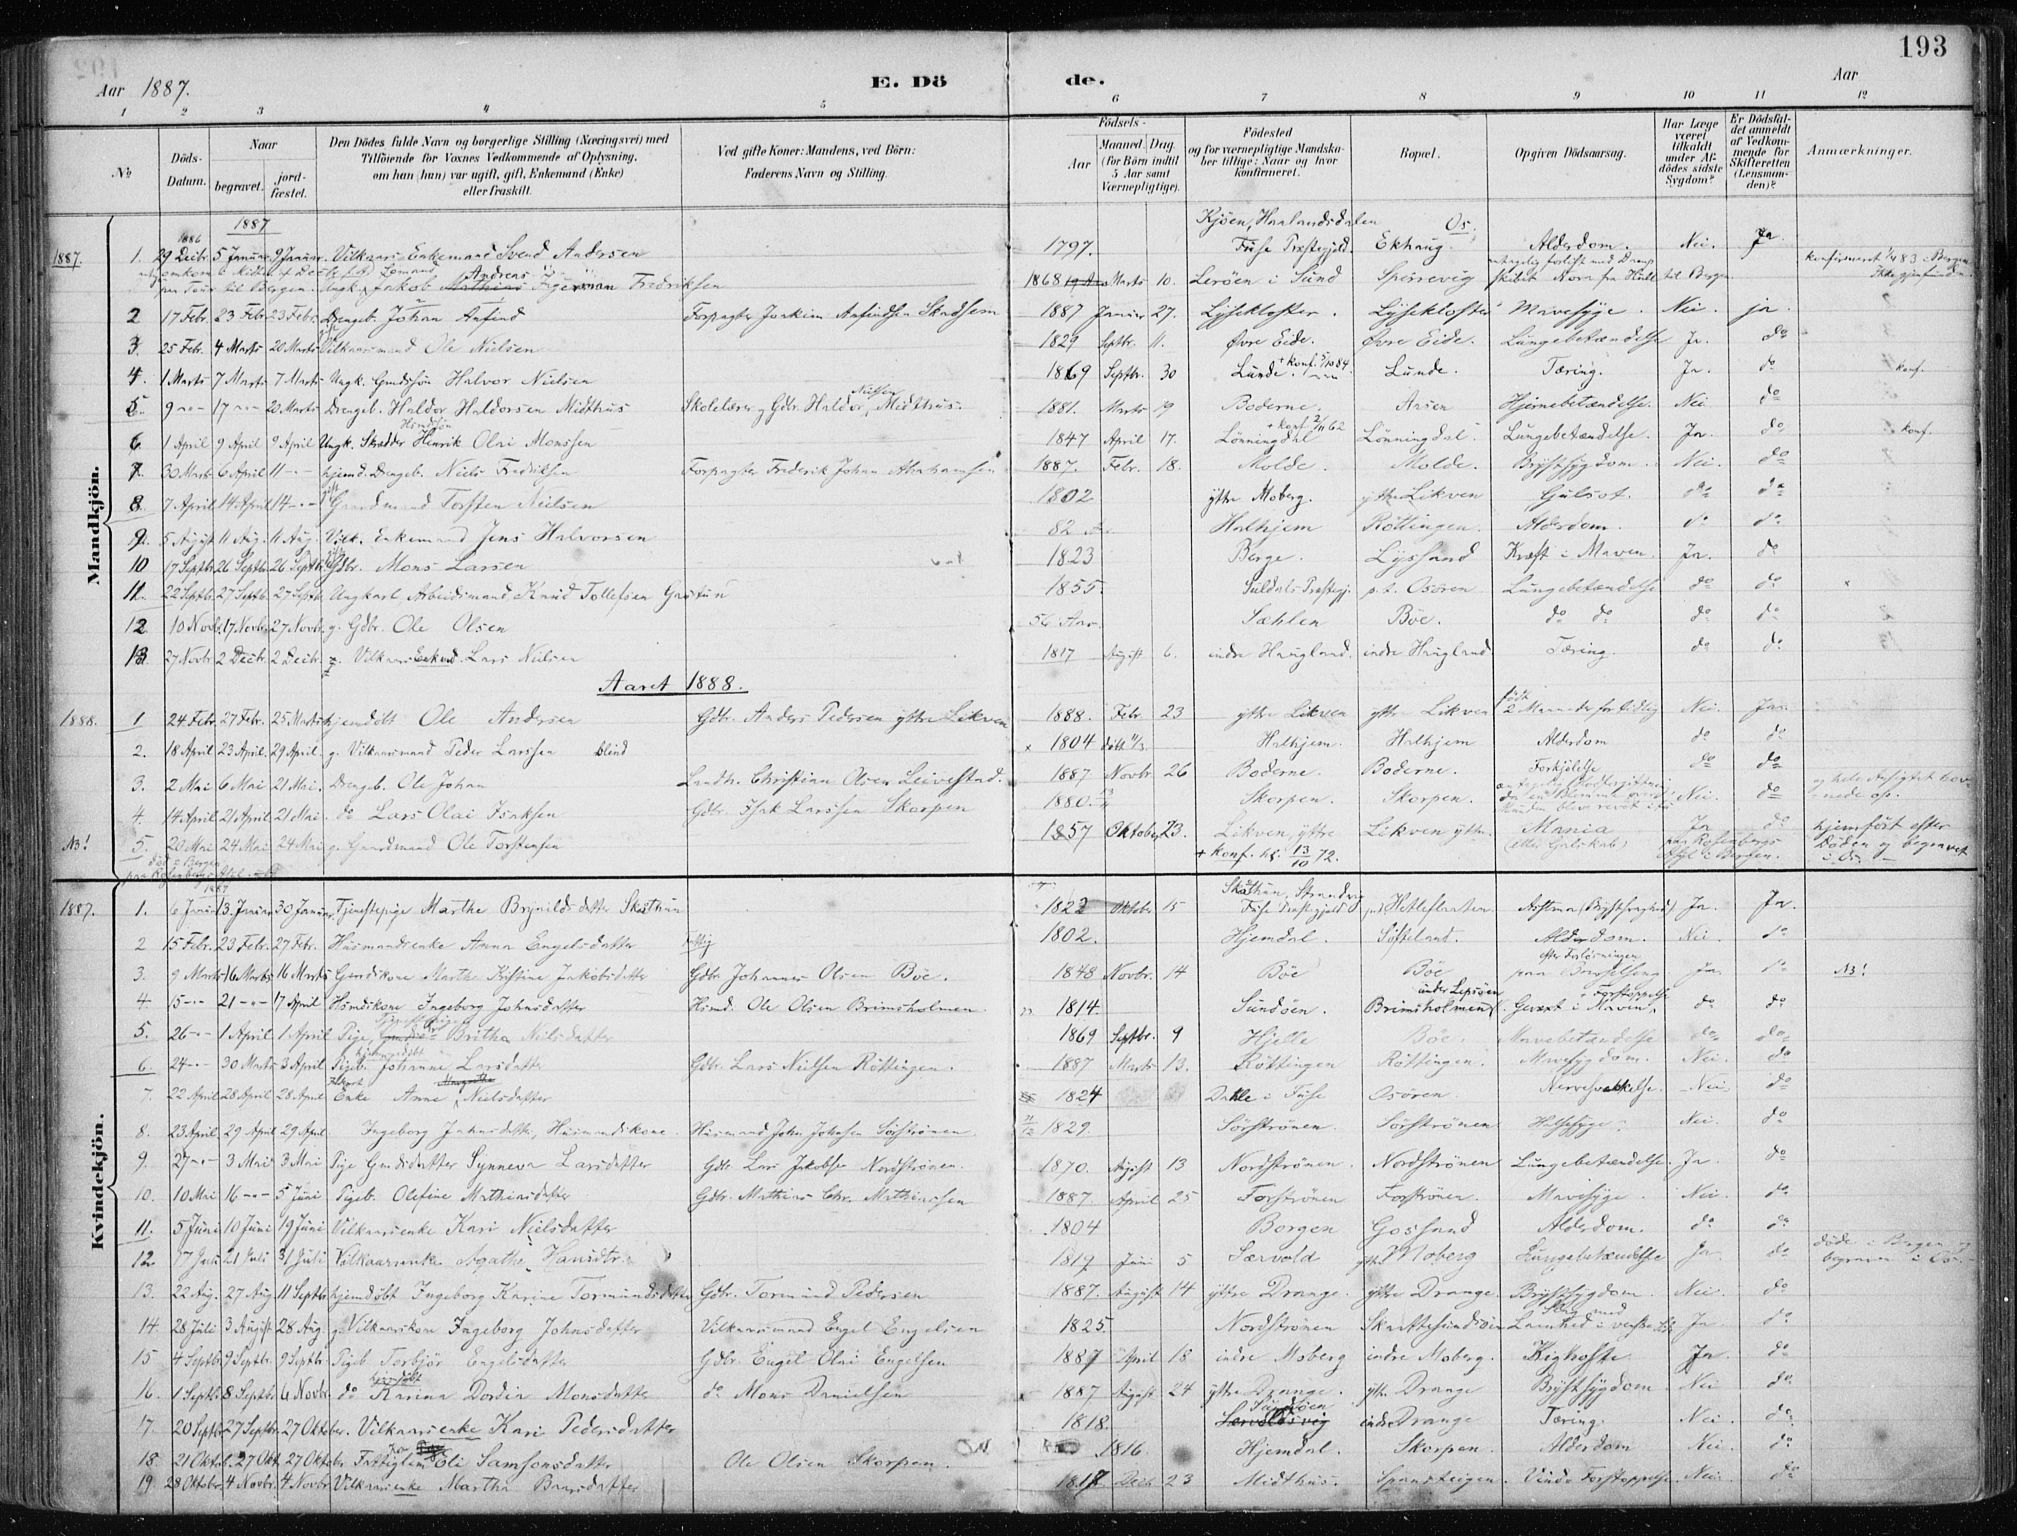 193
Aar 1887. E. Dö de. Aar
1 2 3 4 5 6 7 8 9 10 11 12
No Döds-Datum. Naar begravet. jord-fæstet. Den Dödes fulde Navn og borgerlige Stilling (Næringsvei) med Tilföiende for Voxnes Vedkommende af Oplysning, om han (hun) var ugift, gift, Enkemand (Enke) eller fraskilt. Ved gifte Koner: Mandens, ved Börn: Faderens Navn og Stilling. Födsels- Aar Maaned. Dag. (for Börn indtil 5 Aar samt Værnepligtige). Födested og for værnepligtige Mandskaber tillige: Naar og hvor konfirmeret. Bopæl. Opgiven Dödsaarsag. Har Læge været tilkaldt under Afdödes sidste Sygdom? Er Dödsfaldet anmeldt af Vedkommende for Skifteretten (Lensmanden)? Anmærkninger.
Mandkjön.
1887 Kjöen, Haalandsdalen Os.
1887. 1. 1886 29 Decbr. 5 Januar 9 Januar. Vilkaars Enkemand Svend Andersen 1797. Fuse Præstegjeld. Ekhaug. Alderdom. Nei. Ja
Tour til Bergen. Ungk. Jakob Andreas Ingeman Fredriksen 1868 Marts 10. Leröen i Sund Spirrevig Skibet Norn fra Hull til Bergen Ikke gjenfunden.
2 17 Febr. 23 Febr 23 Febr. Drengeb. Johan Anfind Forpagter Joakim Anfindsen Skadsem 1887 Januar 27. Lysekloster. Lysekloster Mavesyge. Nei. ja.
3. 25 Febr. 4 Marts 20 Marts Vilkaarsmand Ole Nielsen 1829 Septbr. 11. Øvre Eide. Øvre Eide. Lungebetændelse Ja. do
4. 1 Marts 7 Marts 7 Marts Ungk. Gmdssön Halvor Nielsen 1869 Septbr. 30 Lunde. + konf. 5/10 84. Lunde. Tæring. Ja. do konf.
5. 9 -"- 17 -"- 20 Marts Drengeb. Haldor Haldorsen Midthus Skolelærer og Gdbr. Haldor Nielsen Midthus. 1881. Marts 19 Boderne. Aasen Hjernebetændelse. Nei do
6. 1 April 9 April 9 April Ungk. Skrædder Husmdssön Henrik Olai Monssen 1847 April 17. + konf. 2/11 62 Lönningdal Lönningdal Lungebetændelse. Ja. do konf.
7. 30 Marts 6 April 11 -"- hjemd. Drengeb. Niels Fredriksen Forpagter Frederik Johan Abrahamsen 1887. Febr. 18. Molde. Molde. Brystsygdom. Nei. do
8. 7 April 14 April 14 -"- gift Gaardmand Torsten Nielsen 1802 ytre Moberg. ytre Likven Gulsot. do do
9. 5 August 11 Aug. 11 Aug. Vilk. Enkemand Jens Halvorsen 82 Halhjem Röttingen. Alderdom. do do
10 17 Septbr. 26 Septbr. 26 Septbr. gift Gdbr. Mons Larsen 1823 Berge. Lyssand Kræft i Maven. Ja. do
11. 22 Septbr. 27 Septbr. 27 Septbr. Ungkarl, Arbeidsmand, Knud Tollefsen Grostun 1855. Suldals Præstegj. p.t. Osören Lungebetændelse do do
12. 10 Novb. 17 Novbr. 27 Novbr. g. Gdbr. Ole Olsen 56 Aar. Sæhlen Böe. do do do do
13. 27 Novbr 2 Decbr. 2 Decbr. Vilkaars Enkmd. Lars Nielsen 1817 August 6. indre Haugland. indre Haugland Tæring. do do
Aaret 1888.
1888. 1 24 Febr. 27 Febr. 25 Marts hjemdöbt Ole Andersen Gdbr. Anders Pedersen yttre Likven 1888. Febr. 23 yttre Likven yttre Likven født 2 Maaneder for tidlig Nei. Ja.
2. 18 April 23 April. 29 April. g. Vilkaarsmand Peder Larssen blind 1804 döbt 11/3. Halhjem. Halhjem Alderdom do do
3. 2 Mai 6 Mai 21 Mai. Drengeb. Ole Johan Landh. Christian Olsen Leivestad. 1887 Novbr 26 Boderne. Boderne. Forkjölelse do do
4. 14 April 21 April 21 Mai. do Lars Olai Isaksen Gdbr. Isak Larssen Skorpen 1880. Skorpen. Skorpen. Nei. do og hele Ansigtet hovnede op.
N3! 5. 20 Mai 24 Mai 24 Mai g. Gaardmand Ole Torstensen 1857 Oktober 23. Likven, yttre Likven yttre. Mania Ja do hjemfört efter
död i Bergen + konf. kl. 13/10 72. (eller Galskab) paa Rosenbergs Asyl i Bergen. Döden og begravet i Os.
Kvindekjön.
1887. 1. 6 Januar 13. Januar 30 Januar. Tjenestepige Marthe Brynildsdatter Skaathun 1822 Oktober 15 Skaathun, Strandvig Fuse Præstegjeld Hetleflaaten. Asthma (Brysttranghed) Ja. Ja.
2 15 Febr. 23 Febr. 27 Febr. Husmandsenke Anna Engelsdatter fattig 1802. Hjemdal. Söfteland. Alderdom. Nei. do
3. 9 Marts 16 Marts 16 Marts Gmdskone Marthe Kristine Jakobsdatter Gdbr. Johannes Olsen Böe. 1848 Novbr. 14 Böe Böe efter Forlösningen paa Barselseng Ja. do N3!
4. 15 -"- 21 -"- 17 April Hsmdskone Ingeborg Johnsdatter Husmd. Ole Olsen Brimsholmen 1814. Sundöen. under Lepsöen Brimsholmen Forstoppelse Gevext i Maven. do do
5. 26 -"- 1 April 1 April Pige, Britha Nilsdatter 1869 Septbr. 9 Hjelle Böe. Mavebetændelse do do
6. 24 -"- 30 Marts 3 April hjemmedöbt Pigeb. Johanne Larsdatter Gdbr. Lars Nielsen Röttingen. 1887 Marts 13. Röttingen Röttingen. Mavesygdom. Nei. do
7. 22 April 28 April 28 April Enke Anne Nielsdatter 1824 Dahle i Fuse Osören. Nervesvækkelse. Nei do
8. 23 April. 29 April 29 April. Ingeborg Johnsdatter, Husmandskone. Husmand John Johnsen Sörströnen. 1829. Sörströnen. Sörströnen Halssyge. Nei. do
9. 27 -"- 3 Mai 3 Mai Pige Gmdsdatter Synneva Larsdatter Gdb. Lars Jakobsen Nordströnen. 1870. August 13 Nordströnen. Nordströnen Lungebetændelse. Ja. do
10. 10 Mai 16 -"- 5 Juni Pigeb. Olefine Mathiasdatter Gdbr. Mathias Chr. Mathiassen 1887. April 25 Forströnen Forströnen. Mavesyge Nei. do
11. 5 Juni 10 Juni 19 Juni Vilkaarsenke Kari Nielsdatter 1804 Borgen Gossand Alderdom. do do
12 17 Juli 21 Juli 31 Juli Vilkaarsenke Agatha Hansdtr. 1817 Juni 5 Særvold ytre Moberg Lungebetændelse Ja do döde i Bergen og begraven i Os.
13. 22 Aug. 27 Aug 11 Septbr. hjemdöbt Ingeborg Karine Tormundsdatter Gdbr. Tormund Pedersen 1887. August 14 yttre Drange. yttre Drange. Brystsygdom. Nei. do
14. 28 Juli 3 August 28 Aug. g. Vilkaarskone Ingeborg Johnsdatter Vilkaarsmand Engel Engelsen 1825. Nordströnen Skaattesundsöen Slag med Lamhed i venstre Side Ja. do
15 4 Septbr. 9 Septbr. 9 Septbr. Pigeb Torbjör Engelsdatter Gdbr. Engel Olai Engelsen 1887 April 18 indre Moberg indre Moberg. Kighoste Ja. do
16. 1 Septb. 8 Septbr. 6 Novbr. do hjemdöbt Karina Dordia Monsdatter do Mons Danielsen 1887 August 24 yttre Drange. yttre Drange Brystsygdom Nei do
17. 20 Septbr. 27 Septbr. 27 Oktober. Vilkaarsenke Kari Pedersdatter 1818. Sundöen indre Drange Tæring. Nei. do
18. 21 Oktob. 27 Okt. 27 Oktober Fattiglem Eli Samsonsdatter Ole Olsen Skorpen. 1816. Hjemdal. Skorpen. Alderdom Nei do
19. 28 Oktober 4 Novbr. 4 Novbr Vilkaarsenke Martha Baarsdatter 1817 Decb. 23 Midthus. Spansteigen. Vinde Forstoppelse. Nei. do